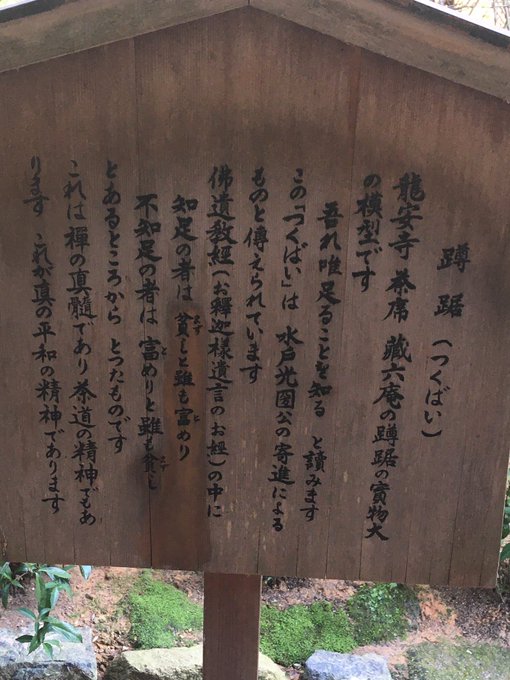 蹲踞(つくばい)
龍安寺 茶席 藏六庵の蹲踞の實物大
の模型です
吾れ唯足ることを知る と讀みます
この「つくばい」は 水戸光圀公の寄進による
ものと傳えられています
佛遺教經(お釋迦様遺言のお經)の中に
知足の者は 貧しと雖も富めり
不知足の者は 富めりと雖も貧し
とあるところから とつたものです
これは禪の真髓であり茶道の精神でもあ
ります これが真の平和の精神であります